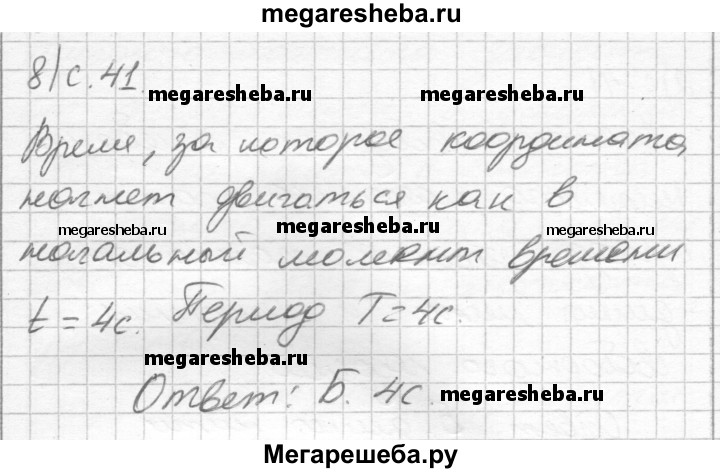 megaresheba.ru
8/с. 41.
megaresheba.ru megaresheba.ru
Время, за которое координата
начнет двигаться как в
megaresheba.ru megaresheba.ru megaresheba.ru
начальный момент времени
t = 4с. Период T = 4с.
megaresheba.ru
Ответ: Б. 4с. megaresheba.ru
Мегарешеба.ру